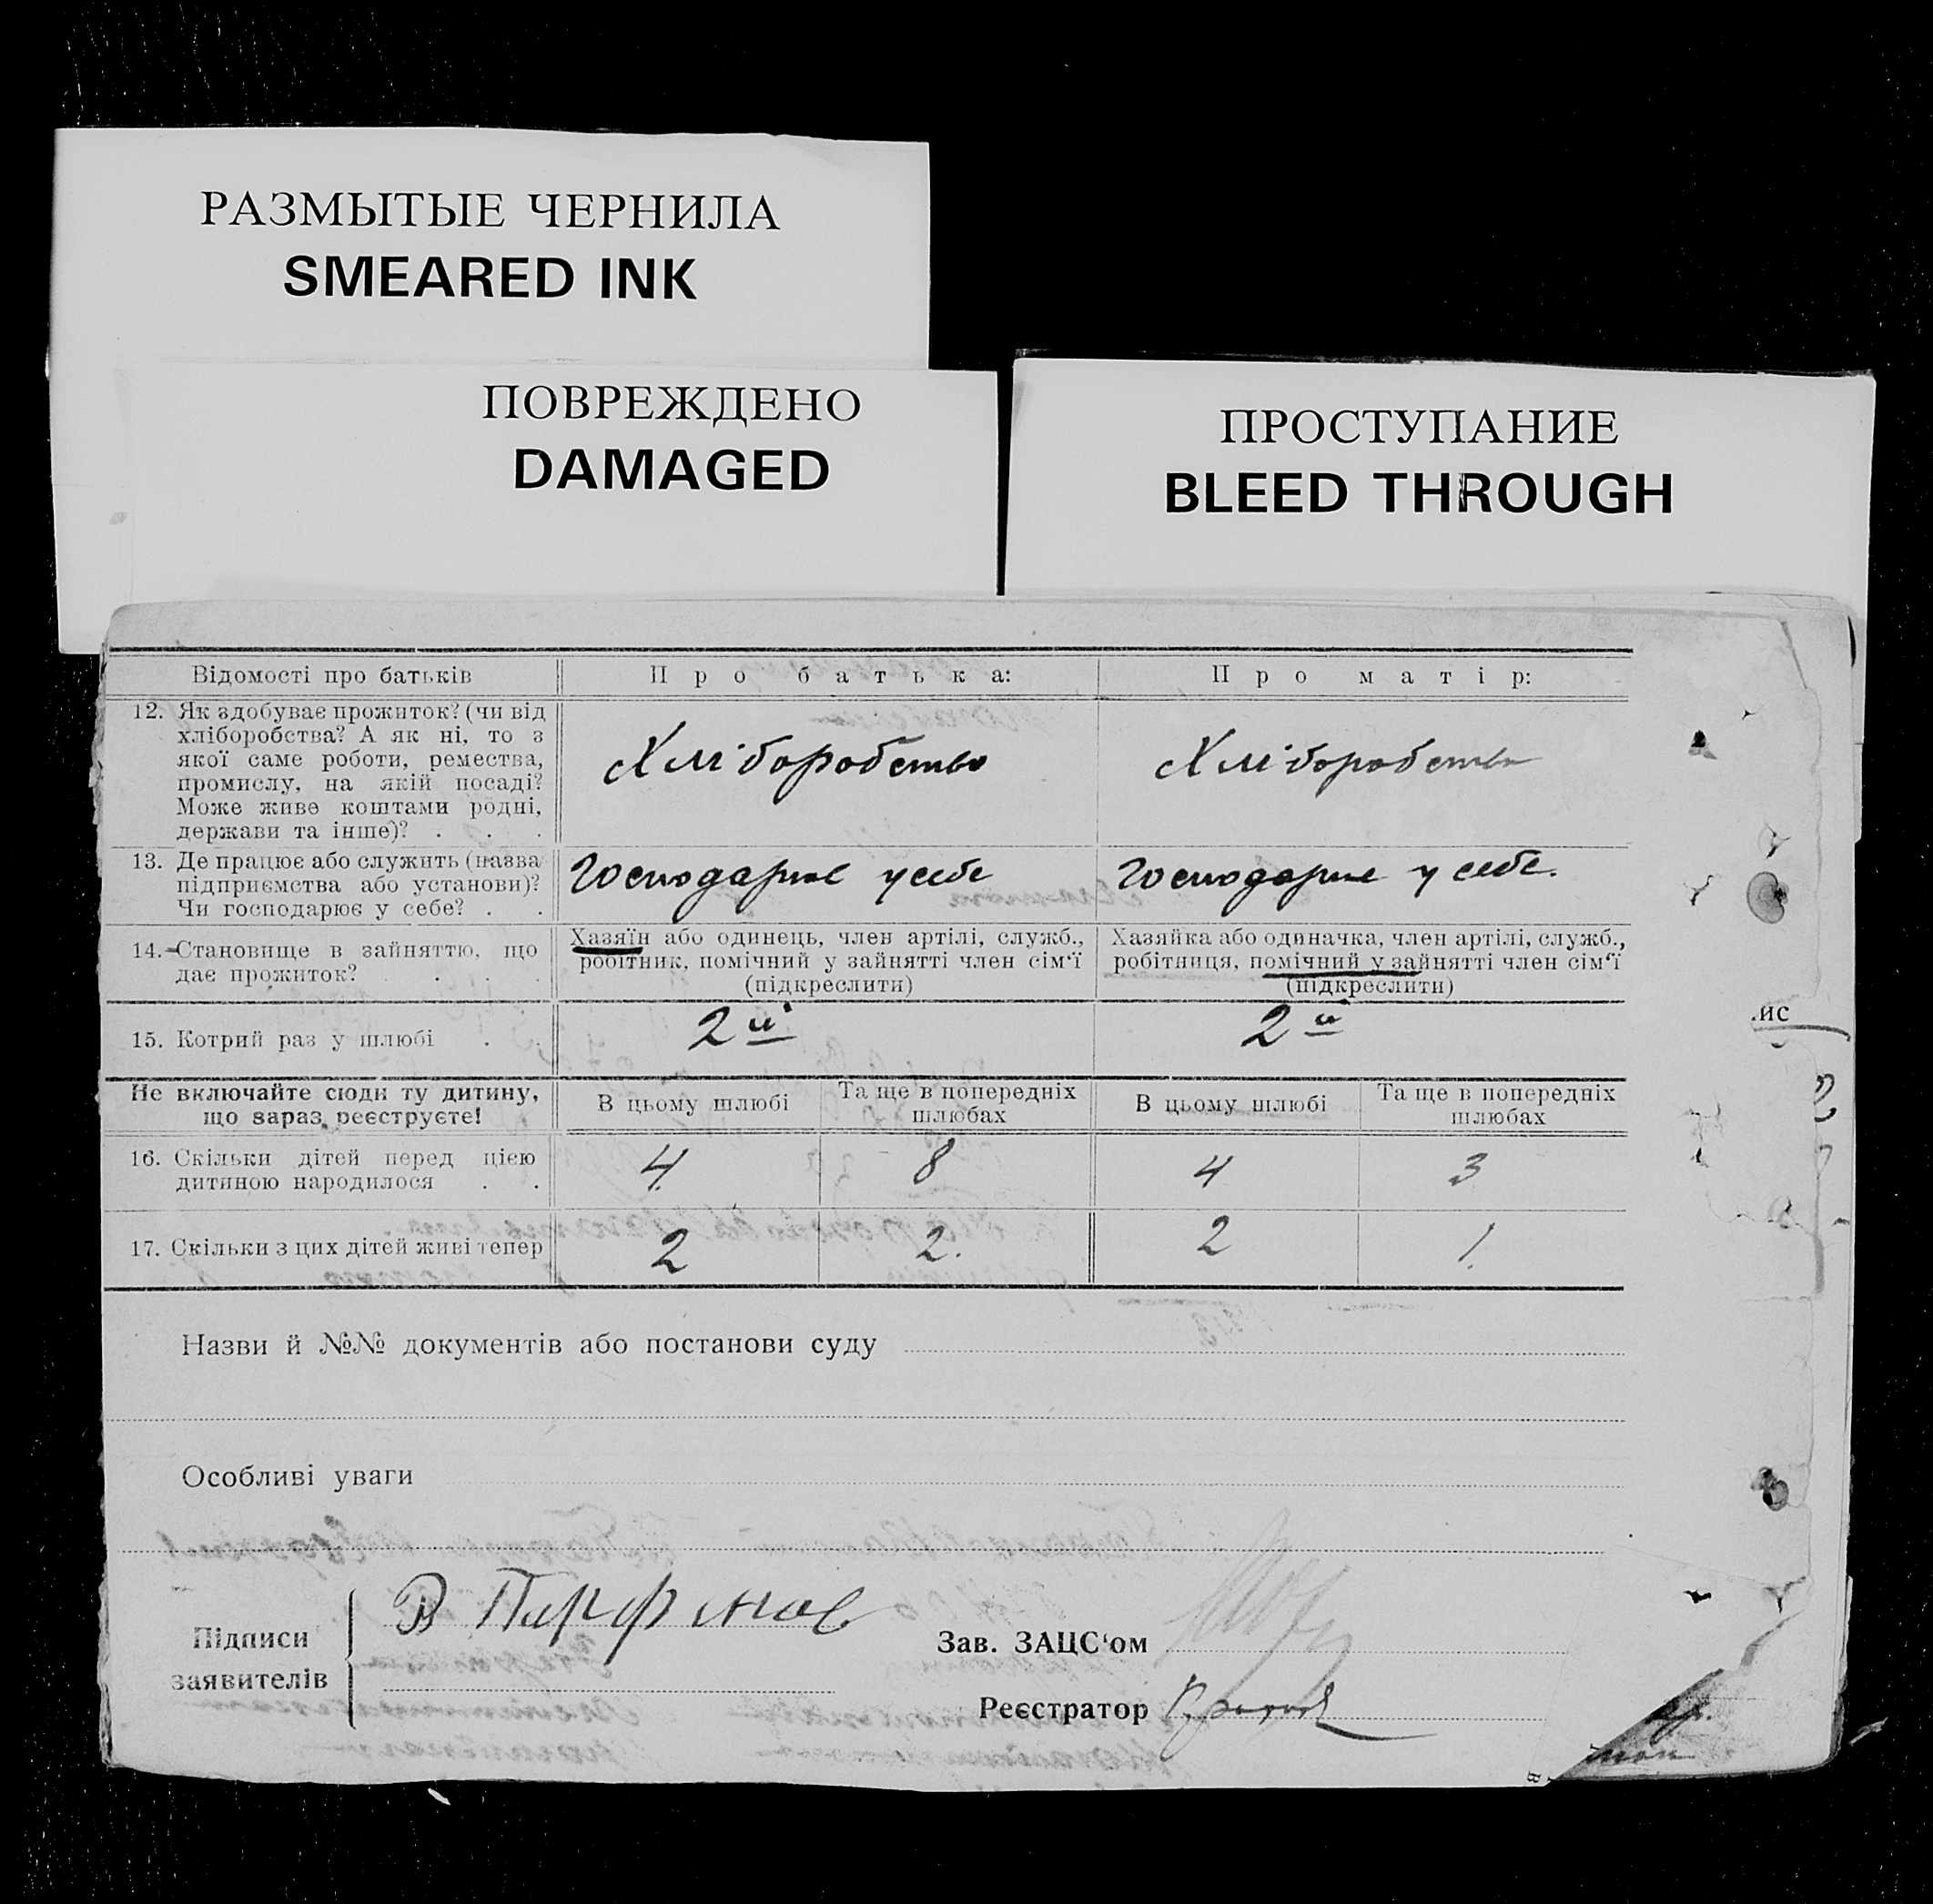 РАЗМЫТЫЕ ЧЕРНИЛА
SMEARED INK
ПОВРЕЖДЕНО
DAMAGED
ПРОСТУПАНИЕ
BLEED THROUGH
Відомості про батьків
Про батька:
Про матір:
12. Як здобуває прожиток? (чи від
хліборобства? А як ні, то з
якої саме роботи, ремества,
промислу, на якій посаді?
Може живе коштами родні,
держави та інше)? . . .
Хліборобство
Хліборобство
13. Де працює або служить (назва
підприємства або установи)?
Чи господарює у себе? . .
Господарює у себе
Господарює у себе.
14. Становище в зайняттю, що
дає прожиток? . . .
Хазяїн або одинець, член артілі, служб.,
робітник, помічний у зайнятті член сім‘ї
(підкреслити)
Хазяйка або одиначка, член артілі, служб.,
робітниця, помічний у зайнятті член сім‘ї
(підкреслити)
15. Котрий раз у шлюбі . .
2й
2й
.ис
Не включайте сюди ту дитину,
що зараз реєструєте!
В цьому шлюбі
Та ще в попередніх
шлюбах
В цьому шлюбі
Та ще в попередніх
шлюбах
16. Скільки дітей перед цією
дитиною народилося . .
4
8
4
3
17. Скільки з цих дітей живі тепер
2
2.
2
1.
Назви й №№ документів або постанови суду
Особливі уваги
Підписи
заявителів
В Парфинов
Зав. ЗАЦС‘ом
Реєстратор